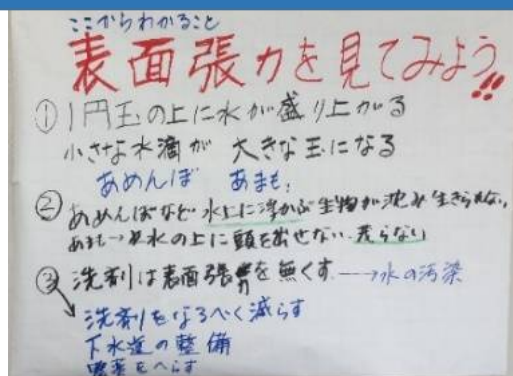 ここからわかること
表面張力を見てみよう!!
① 1円玉の上に水が盛り上がる
小さな水滴が 大きな玉になる
あめんぼ あまも、
② あめんぼなど 水上に浮かぶ生物が沈み 生きられない、
あまも→ 水の上に頭を出せない.
③ 洗剤は表面張力を無くす.→水の汚染
洗剤をなるべく減らす
下水道の整備
をへらす